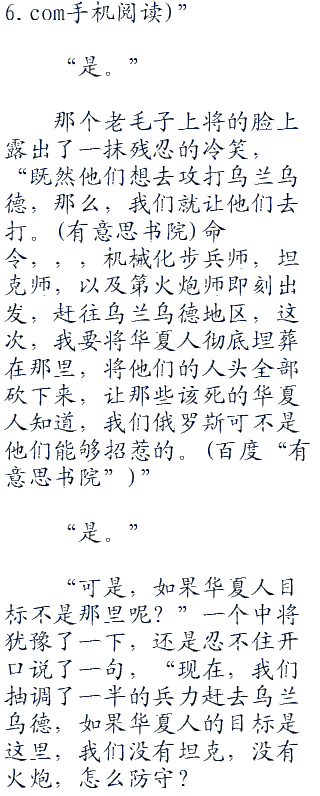 6.com手机阅读)”
“是。”
那个老毛子上将的脸上
露出了一抹残忍的冷笑，
“既然他们想去攻打乌兰乌
德，那么，我们就让他们去
打。(有意思书院)命
令，，，机械化步兵师，坦
克师，以及第火炮师即刻出
发，赶往乌兰乌德地区，这
次，我要将华夏人彻底埋葬
在那里，将他们的人头全部
砍下来，让那些该死的华夏
人知道，我们俄罗斯可不是
他们能够招惹的。(百度“有
意思书院”)”
“是。”
“可是，如果华夏人目
标不是那里呢？”一个中将
犹豫了一下，还是忍不住开
口说了一句，“现在，我们
抽调了一半的兵力赶去乌兰
乌德，如果华夏人的目标是
这里，我们没有坦克，没有
火炮，怎么防守？